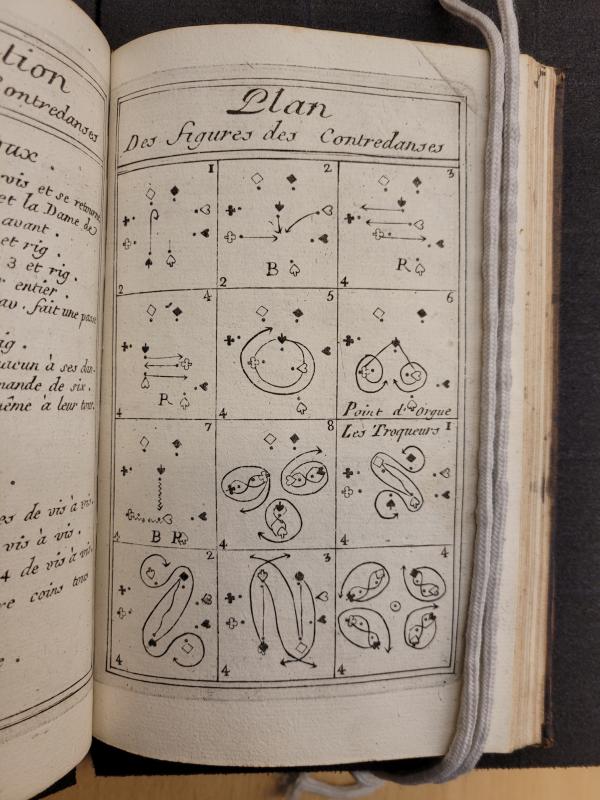 tion
Contredanses
aux .
vis et se retournt
et la Dame de
avant .
et rig .
3 et rig .
entier .
av . fait une passe
ig .
hacun à ses dan
mande de six .
même à leur tour .
es de vis à vis .
vis à vis .
4 de vis à vis .
re coins tous
Plan
Des figures des Contredanses
1 2 3
B R
2 2 4
4 5 6
R
4 4 Point d'Orgue
7 8 Les Troqueurs 1
B R
4 4 4
2 3 4
4 4 4